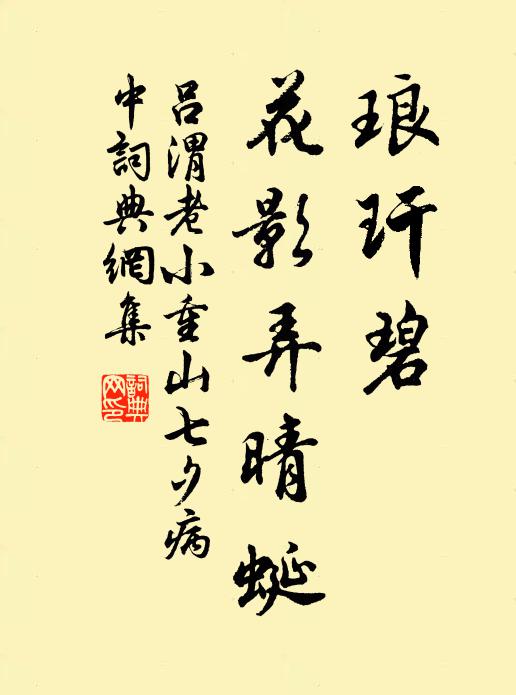 琅玕碧
花影弄晴蜒
呂渭老小重山七夕病
中詞典網集
詞典
网印